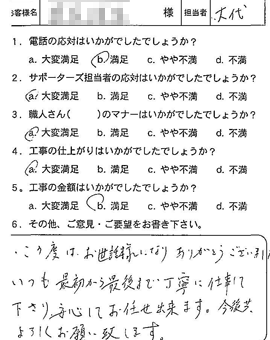 お客様名 様 担当者 大代
1. 電話の応対はいかがでしたでしょうか?
a. 大変満足 b. 満足 c. やや不満 d. 不満
2. サポーターズ担当者の応対はいかがでしたでしょうか?
a. 大変満足 b. 満足 c. やや不満 d. 不満
3. 職人さん( )のマナーはいかがでしたでしょうか?
a. 大変満足 b. 満足 c. やや不満 d. 不満
4. 工事の仕上がりはいかがでしたでしょうか?
a. 大変満足 b. 満足 c. やや不満 d. 不満
5. 工事の金額はいかがでしたでしょうか?
a. 大変満足 b. 満足 c. やや不満 d. 不満
6. その他、ご意見・ご要望をお書き下さい。
・この度はお世話様になりありがとうございま
いつも最初から最後まで丁寧に仕事して
下さり安心してお任せ出来ます。今後共
よろしくお願い致します。